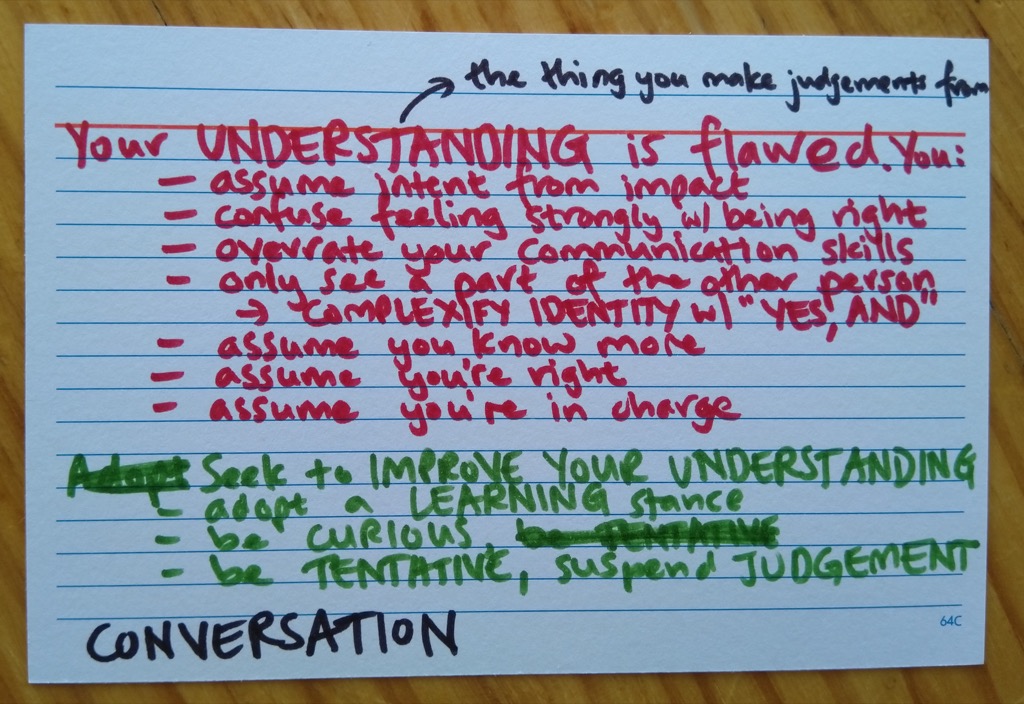 → the thing you make judgements from
Your UNDERSTANDING is flawed. You:
- assume intent from impact
- confuse feeling strongly w/ being right
- overrate your communication skills
- only see a part of the other person
→ COMPLEXIFY IDENTITY w/ "YES, AND"
- assume you know more
- assume you're right
- assume you're in charge
Adopt Seek to IMPROVE YOUR UNDERSTANDING
- adopt a LEARNING stance
- be CURIOUS, be TENTATIVE
- be TENTATIVE, suspend JUDGEMENT
64C
CONVERSATION